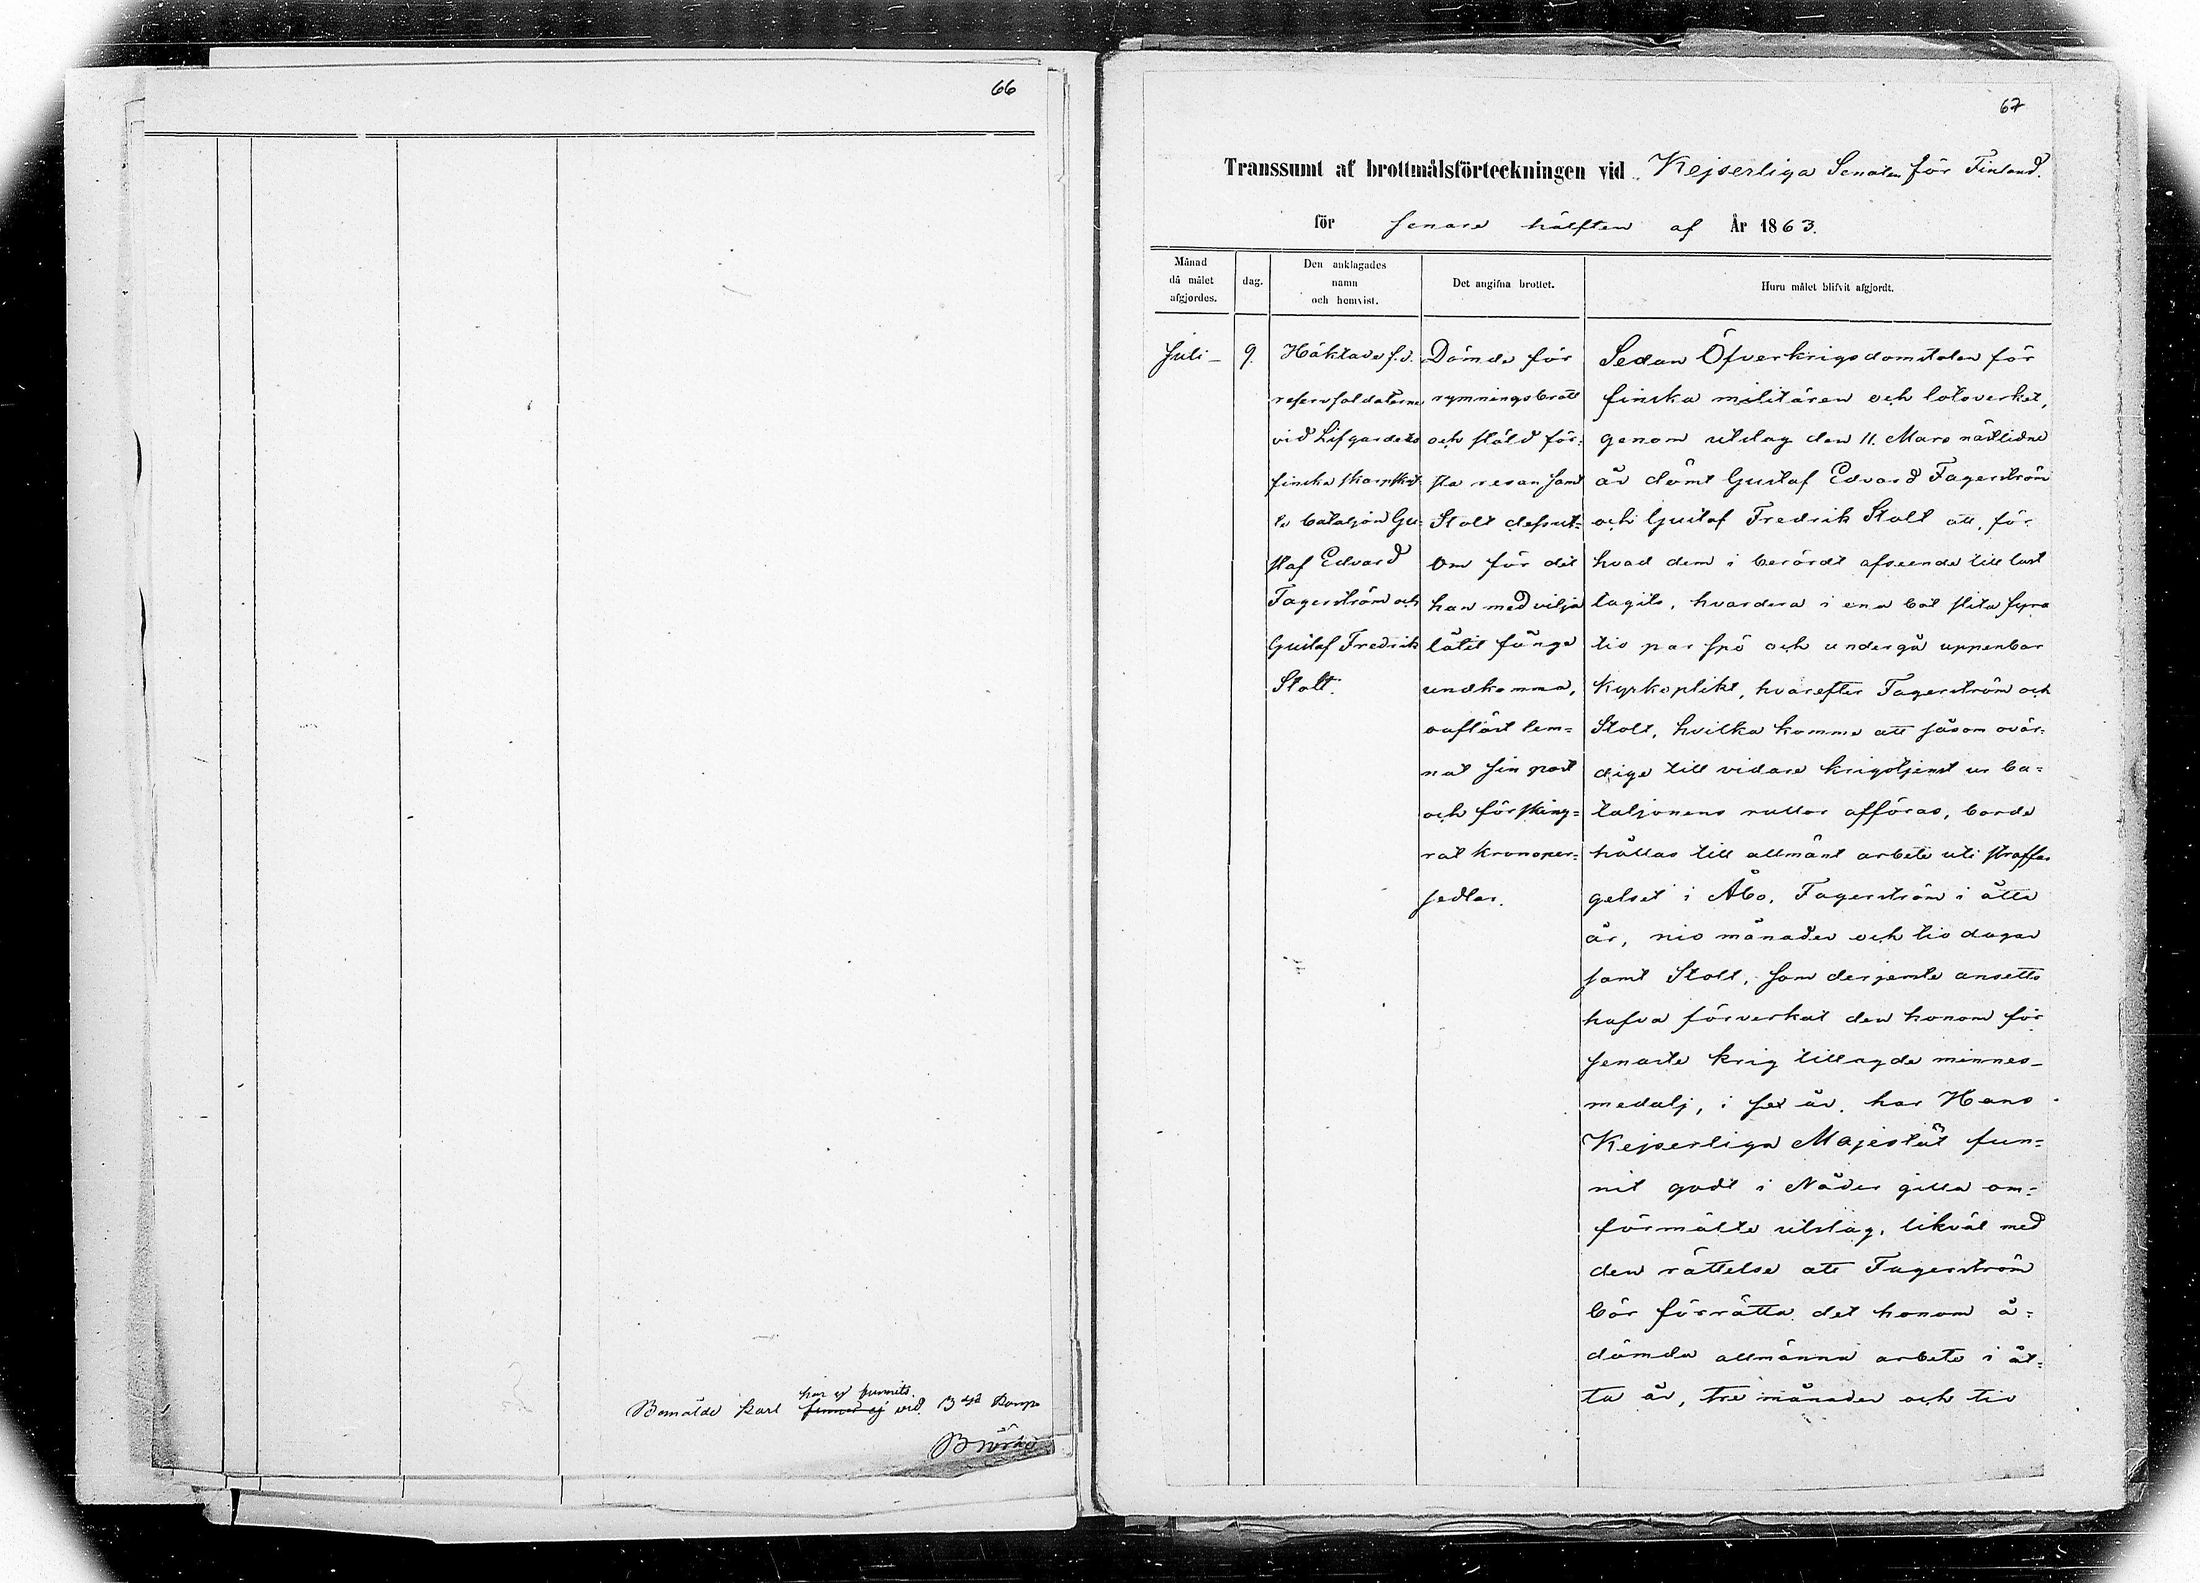 66
Bemälde karl
har ej funnits
finnes ej vid 3dje Komp
67
Transsumt af brottmålsförteckningen vid Kejserliga Senaten för Finland.
för senare hälften af År 1863.
Månad
då målet
afgjordes.
dag.
Den anklagades
namn
och hemvist.
Det angifna brottet.
Huru målet blifvit afgjordt.
Juli
9.
Häktade f.d.
reservsoldaterne
vid Lifgardets
finska skarpskyt
te bataljon Gu-
staf Edvard
Fagerström och
Gustaf Fredrik
Stolt.
Dömde för
rymningsbrott
och stöld för-
sta resan samt
Stolt dessut-
om för det
han med vilja
låtit fånge
undkomma,
oaflöst lem-
nat sin post
och förskingrat
rat kronoper-
sedlar.
Sedan Öfverkrigsdomstolen för
finska militären och lotsverket,
genom utslag den 11. Mars nästlidne
år dömt Gustaf Edvard Fagerström
och Gustaf Fredrik Stolt att, för
hvad dem i berördt afseende till last
lagits, hvardera i ena bot slita fyra
tio par spö och undergå uppenbar
kyrkoplikt, hvarefter Fagerström och
Stolt, hvilka komme att såsom ovär-
dige till vidare krigstjenst ur ba-
taljonens rullor afföras, borde
hållas till allmänt arbete uti straffän
gelset i Åbo, Fagerström i åtta
år, nio månader och tio dagar
samt Stolt, som derjemte ansetts
hafva förverkat den honom för
senaste krig tillagde minnes-
medalj, i sex år, har Hans
Kejserliga Majestät fun-
nit godt i Nåder gilla om-
förmälte utslag, likväl med
den rättelse att Fagerström
bör förrätta det honom å-
dömda allmänna arbete i åt-
ta år, tre månader och tio